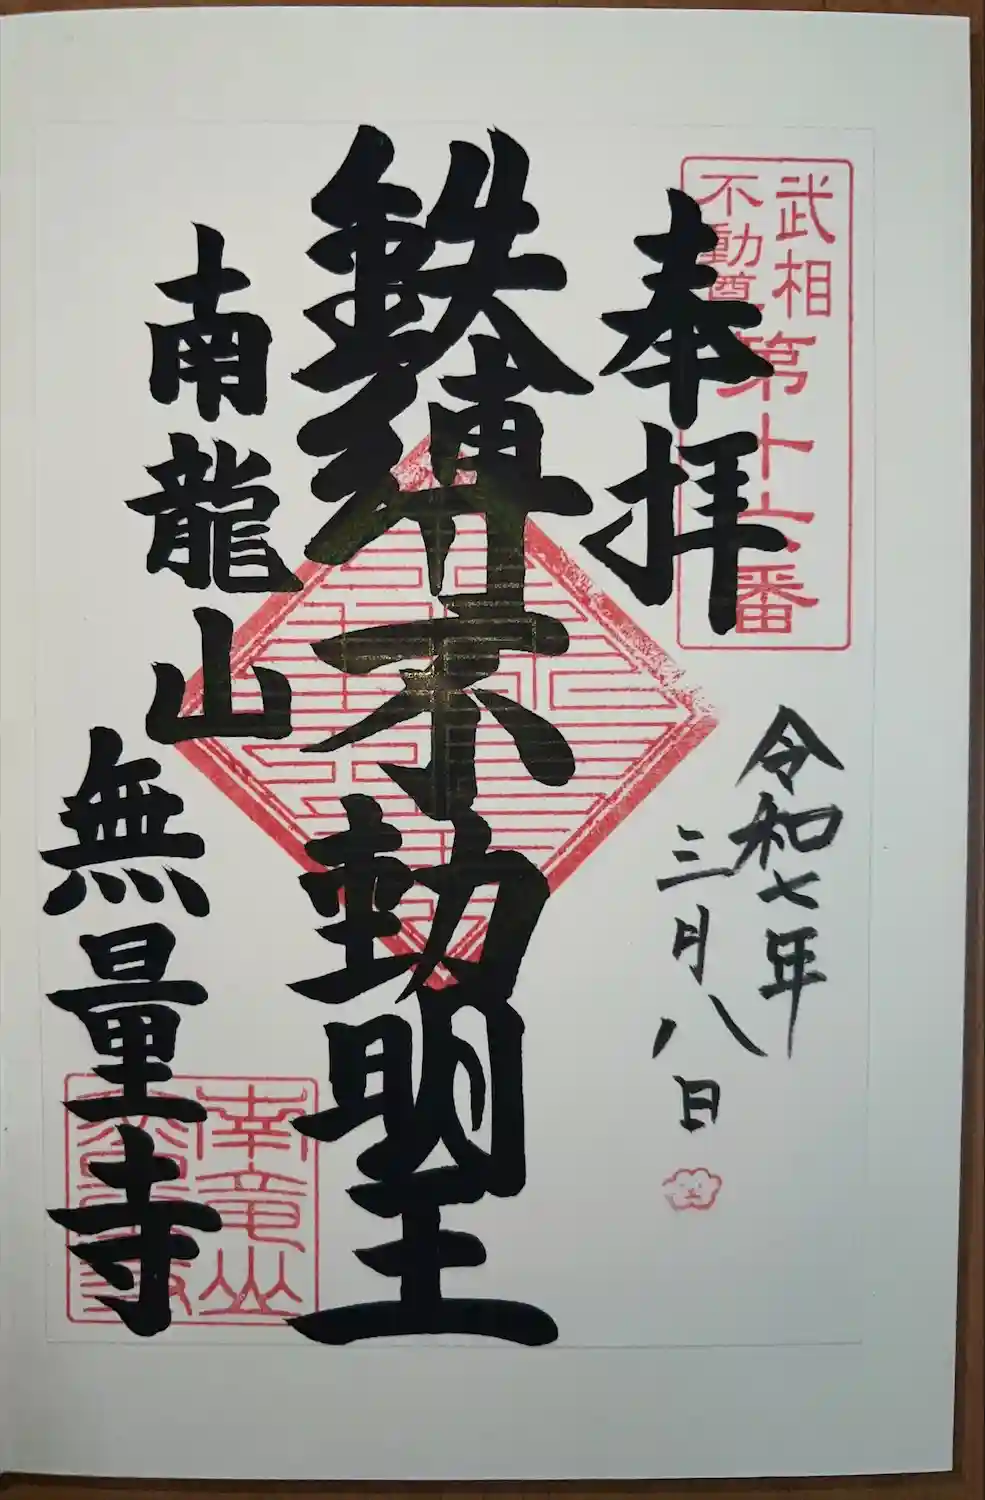 武相
不動尊
第十六番
奉拝
令和七年
三月八日
鉄縛不動明王
南龍山
無量寺
南竜山